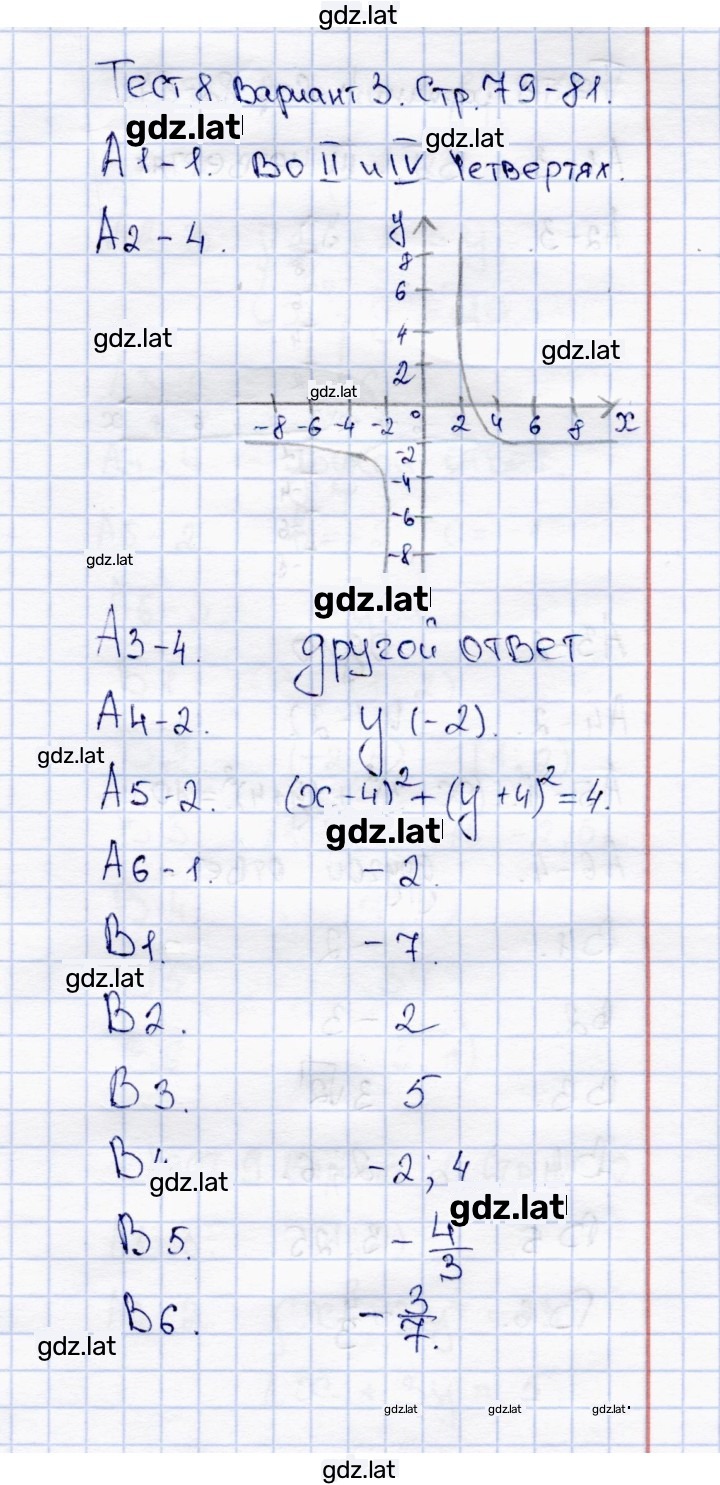 gdz.lat
Тест 8 Вариант 3. Стр. 79-81.
gdz.lat gdz.lat
А1-1. Во II и IV четвертях.
А2-4. y
8
6
gdz.lat 4 gdz.lat
2
gdz.lat
-8 -6 -4 -2 0 2 4 6 8 x
-2
-4
-6
gdz.lat -8
gdz.lat
А3-4. другой ответ
А4-2. y(-2).
gdz.lat
А5-2. (x-4)²+(y+4)²=4.
gdz.lat
А6-1. -2.
В1. -7.
gdz.lat
В2. 2
В3. 5
В -2; 4
gdz.lat gdz.lat
В5. -4/3
В6. -3/7.
gdz.lat
gdz.lat gdz.lat gdz.lat
gdz.lat